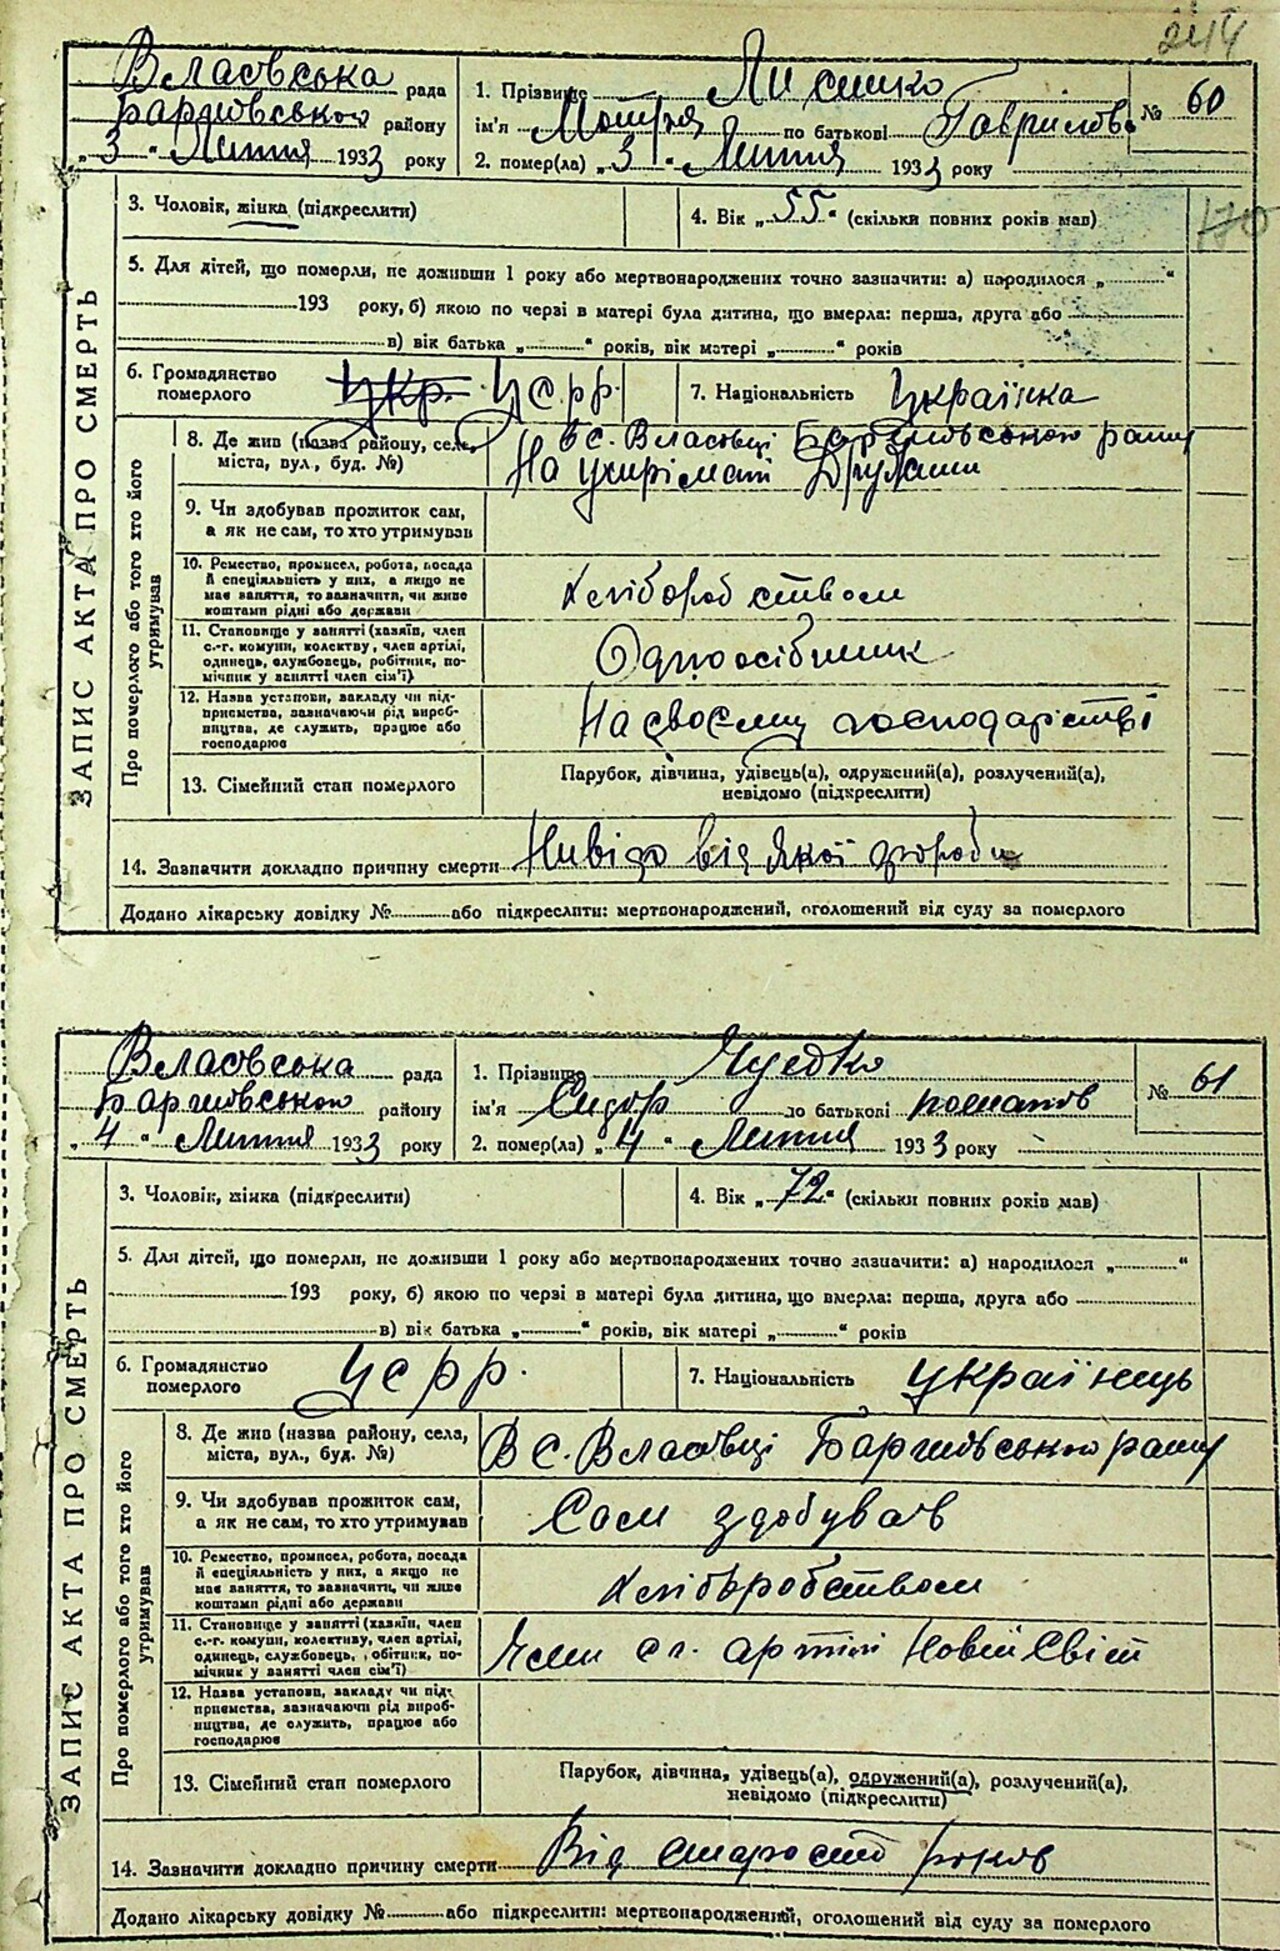 244
Власовська рада
Баришовського району
„3" Липня 1933 року
1. Прізвище
ім'я Мотря по батькові Гаврилов.
2. помер(ла) „3" Липня 1933 року
№ 60
170
ЗАПИС АКТА ПРО СМЕРТЬ
3. Чоловік, жінка (підкреслити)
4. Вік „55" (скільки повних років мав)
5. Для дітей, що померли, не доживши 1 року або мертвонароджених точно зазначити: а) народилося „ "
193 року, б) якою по черзі в матері була дитина, що вмерла: перша, друга або
в) вік батька „ " років, вік матері „ " років
6. Громадянство
померлого
Укр. УСРР.
7. Національність Українка
Про померлого або того хто його
утримував
8. Де жив (назва району, села,
міста, вул., буд. №)
В с. Власовці Баришовського райну
На утримані
9. Чи здобував прожиток сам,
а як не сам, то хто утримував
10. Ремество, промисел, робота, посада
й спеціяльність у них, а якщо не
має заняття, то зазначити, чи живе
коштами рідні або держави
Хліборобством
11. Становище у занятті (хазяїн, член
с.-г. комуни, колективу, член артілі,
одинець, службовець, робітник, по-
мічник у занятті член сім'ї)
Одноосібник
12. Назва установи, закладу чи під-
приємства, зазначаючи рід вироб-
ництва, де служить, працює або
господарює
На своєму господарістві
13. Сімейний стан померлого
Парубок, дівчина, удівець(а), одружений(а), розлучений(а),
невідомо (підкреслити)
14. Зазначити докладно причину смерті Нивідо від якої хороби
Додано лікарську довідку № або підкреслити: мертвонароджений, оголошений від суду за померлого
Власовська рада
Баришовського району
„4" Липня 1933 року
1. Прізвище
ім'я Сидор по батькові Романов
2. помер(ла) „4" Липня 1933 року
№ 61
ЗАПИС АКТА ПРО СМЕРТЬ
3. Чоловік, жінка (підкреслити)
4. Вік „72" (скільки повних років мав)
5. Для дітей, що померли, не доживши 1 року або мертвонароджених точно зазначити: а) народилося „ "
193 року, б) якою по черзі в матері була дитина, що вмерла: перша, друга або
в) вік батька „ " років, вік матері „ " років
6. Громадянство
померлого
УСРР.
7. Національність Українець
Про померлого або того хто його
утримував
8. Де жив (назва району, села,
міста, вул., буд. №)
В с. Власовці Баришовського райну
9. Чи здобував прожиток сам,
а як не сам, то хто утримував
Сам здобував
10. Ремество, промисел, робота, посада
й спеціяльність у них, а якщо не
має заняття, то зазначити, чи живе
коштами рідні або держави
Хліборобством
11. Становище у занятті (хазяїн, член
с.-г. комуни, колективу, член артілі,
одинець, службовець, робітник, по-
мічник у занятті член сім'ї)
Член сг. артілі Новий Світ
12. Назва установи, закладу чи під-
приємства, зазначаючи рід вироб-
ництва, де служить, працює або
господарює
13. Сімейний стан померлого
Парубок, дівчина, удівець(а), одружений(а), розлучений(а),
невідомо (підкреслити)
14. Зазначити докладно причину смерті Від старости років
Додано лікарську довідку № або підкреслити: мертвонароджений, оголошений від суду за померлого